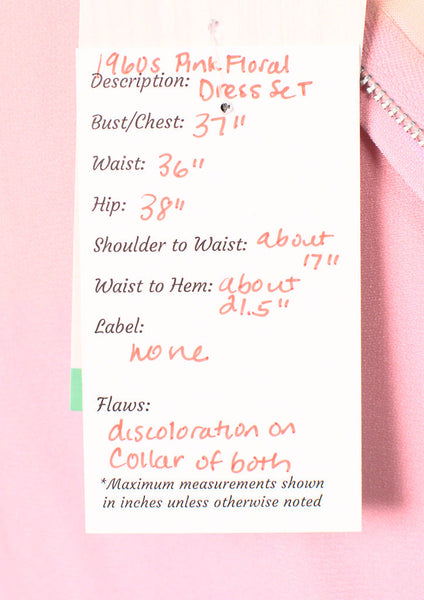 1960s Pink Floral
Description: Dress Set
Bust/Chest: 37"
Waist: 36"
Hip: 38"
Shoulder to Waist: about
17"
Waist to Hem: about
21.5"
Label:
none
Flaws:
discoloration on
Collar of both
*Maximum measurements shown
in inches unless otherwise noted